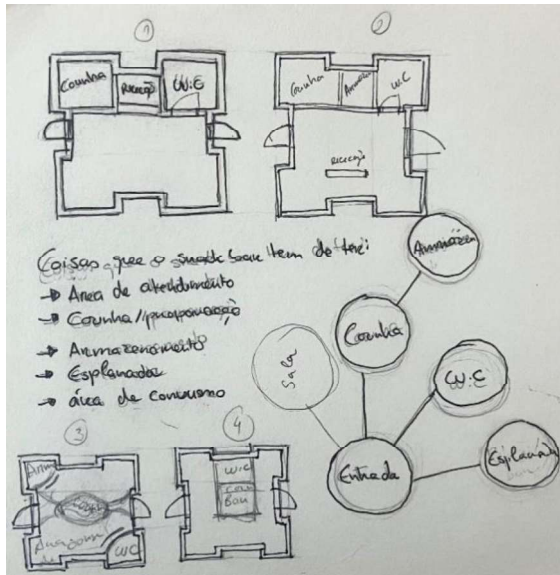 1
2
Cozinha
Receção
W.C
Cozinha
Armazém
W.C
Receção
Coisas que o snack bar tem de ter:
→ Area de atendimento
→ Cozinha/preparação
→ Armazenamento
→ Esplanada
→ área de consumo
Armazém
Cozinha
Sala
W.C
Entrada
Esplanada
3
4
WC
W.C